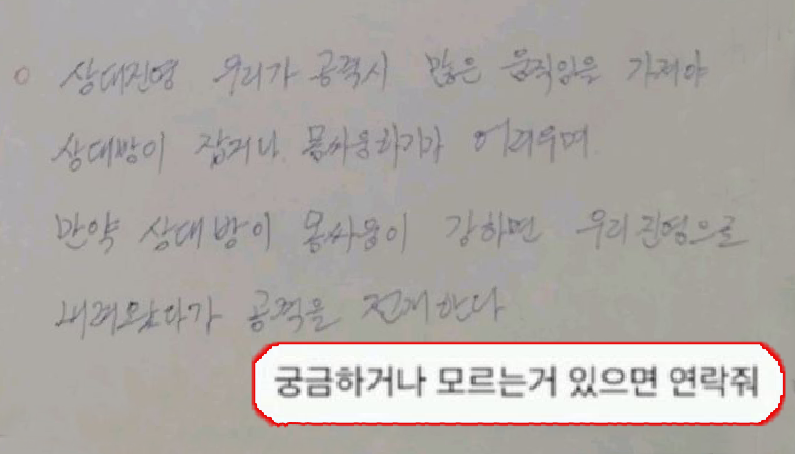 o 상대진영 우리가 공격시 많은 움직임을 가져야
상대방이 잡거나 몸싸움하기가 어려우며.
만약 상대방이 몸싸움이 강하면 우리진영으로
내려왔다가 공격을 전개한다
궁금하거나 모르는거 있으면 연락줘